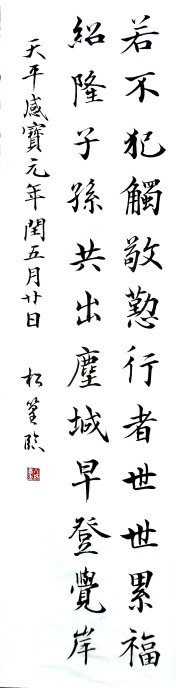 若不犯觸敬懃行者世世累福
紹隆子孫共出塵域早登覺岸
天平感寶元年閏五月廿日
松篁臨